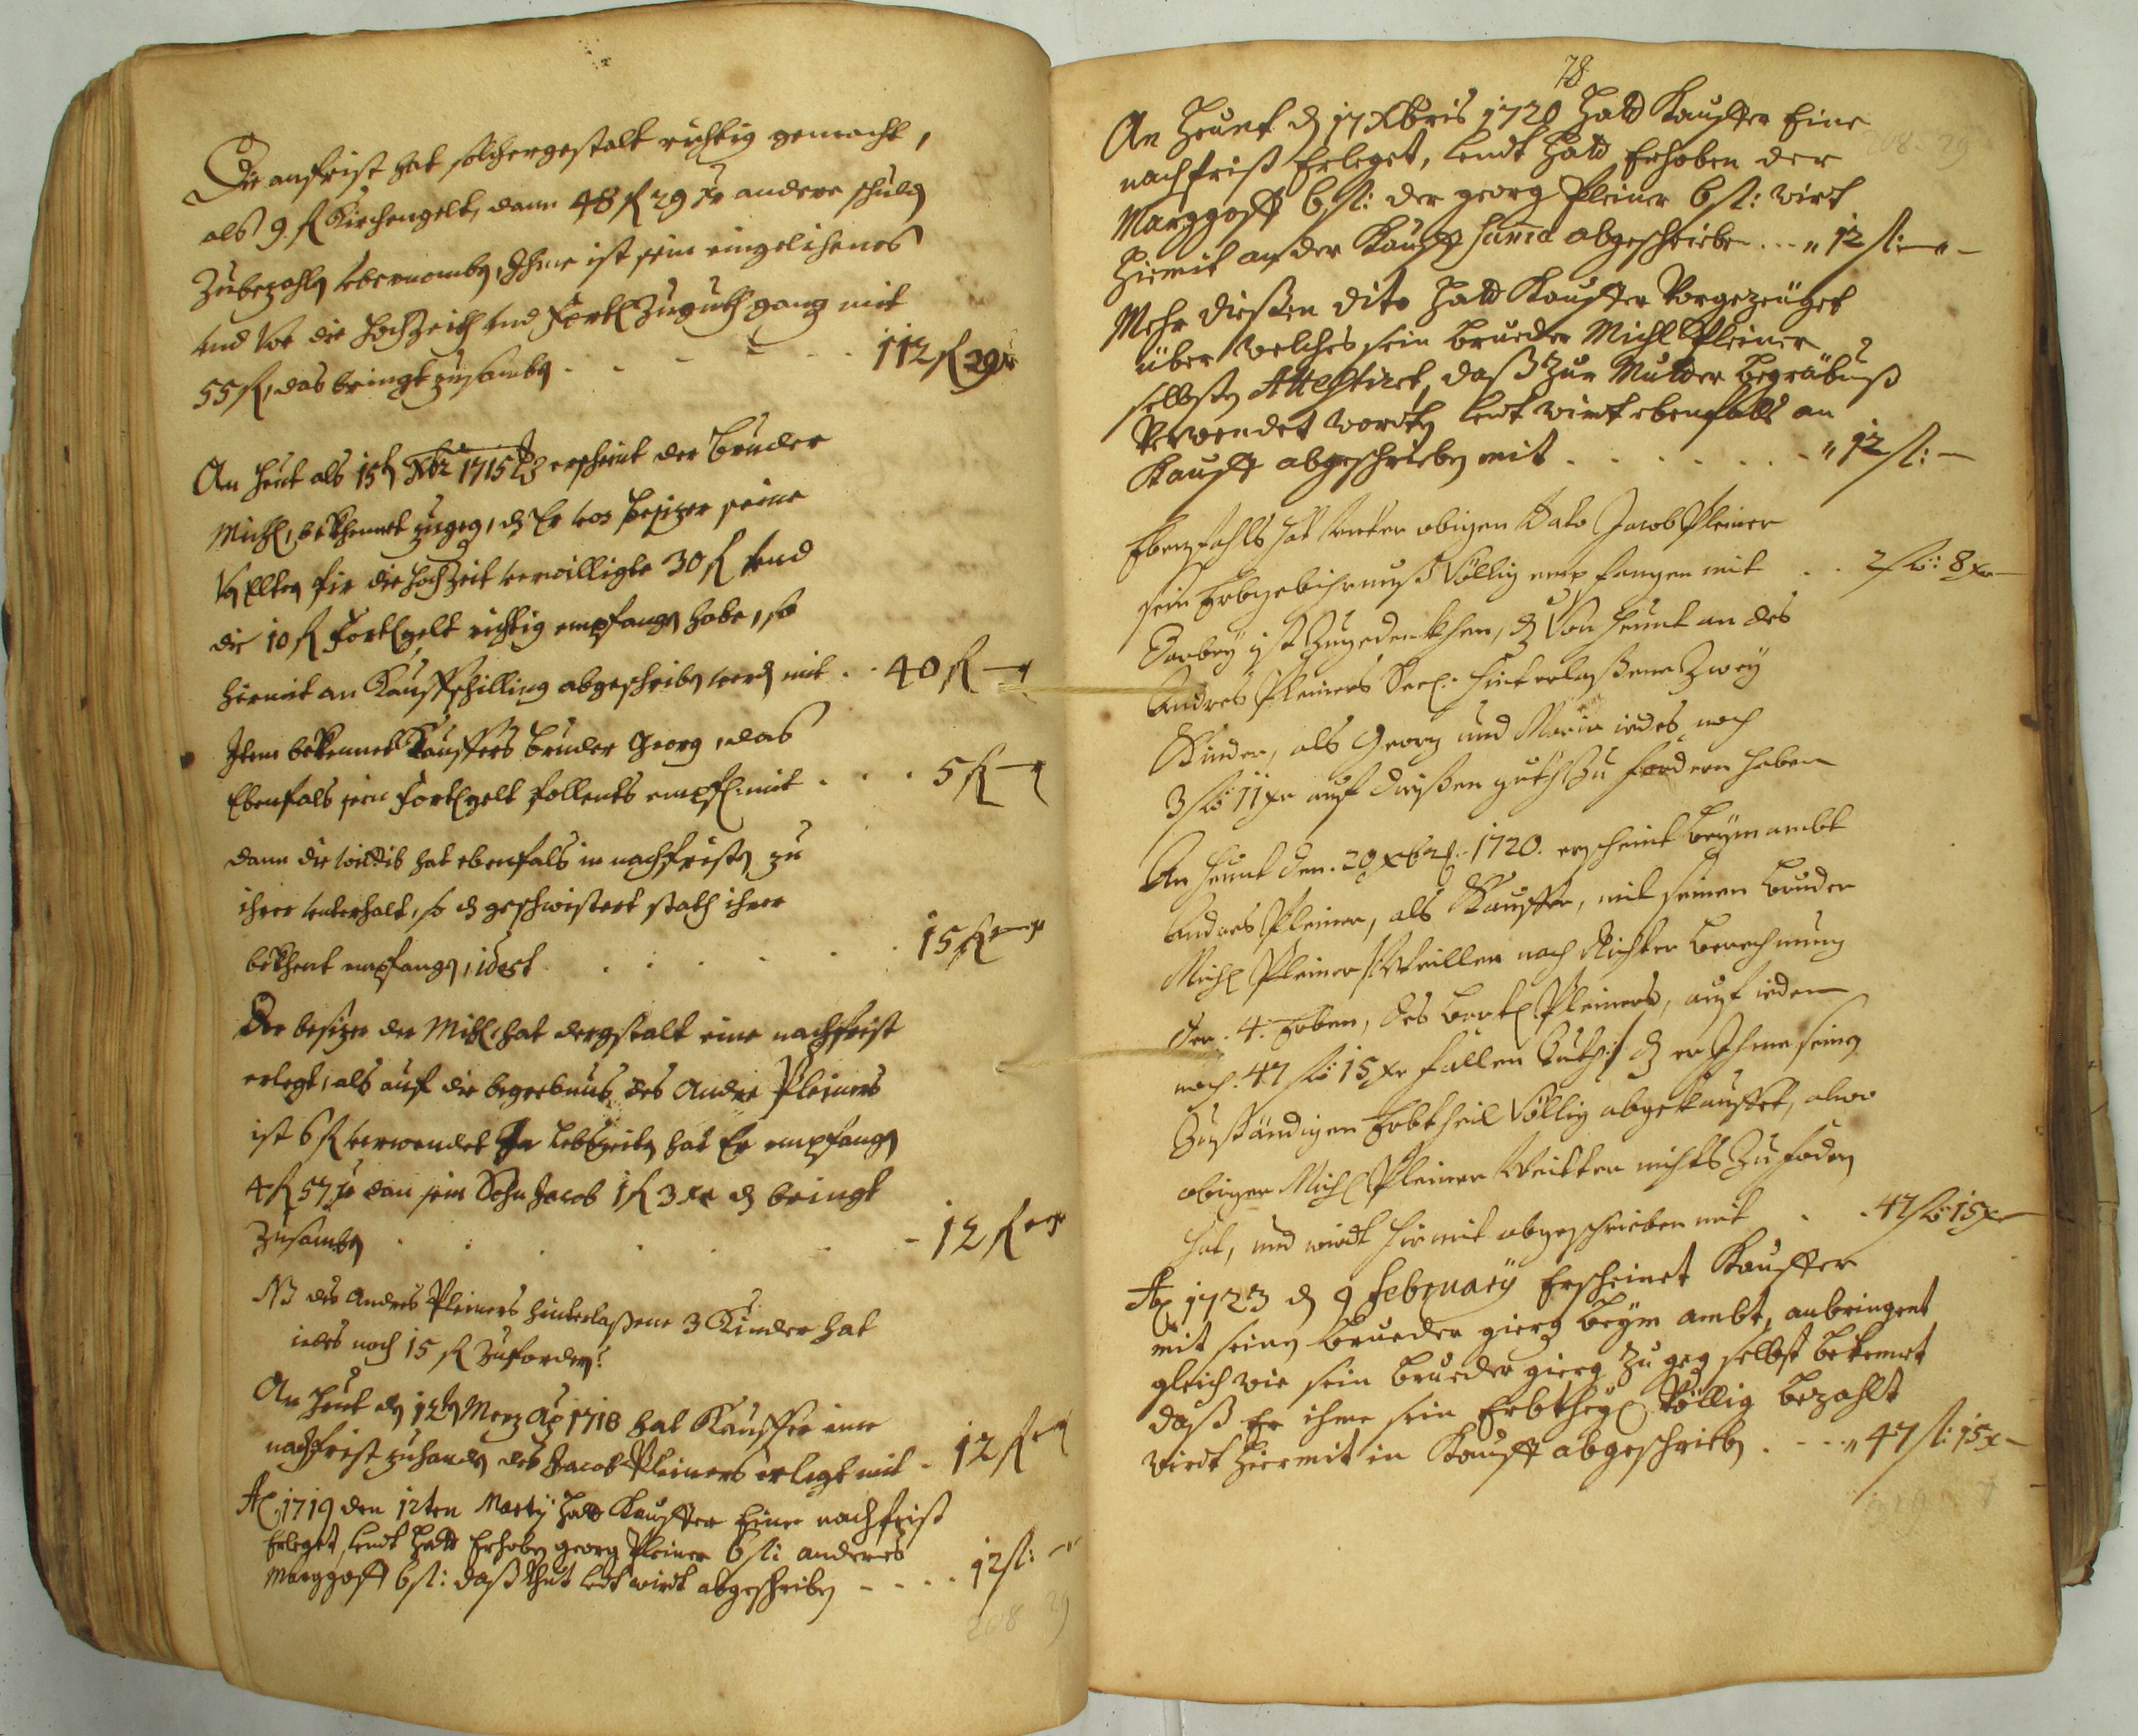 Die anfrist hat solchergestalt richtig gemacht,
als 9 fl Kirchengelt, dann 48 fl 29 xr andere schuldn
Zubezahln ybernombn, Ihme ist sein eingelihenes
und vor die Hochzeith und Fertl Zuguth gang mit
55 fl, das bringt zusambn . . . . 112 fl 29 xr
An heut als 15tn Xbr 1715 erscheint der Bruder
Michl, bekhennet zugegn, dz Er von Besizer seine
fir die Hochzeit verwilligte 30 fl und
die 10 fl Fortlgelt richtig empfangn habe, so
hiemit an Kauffschilling abgeschribn werdn mit . . 40 fl
Item bekennet Kauffers Bruder Georg, das
Ebenfals sein Fortlgelt follents empfl: mit . . . 5 fl
dann die Wittib hat ebenfals in nachfristn zu
ihrer unterhalt, so dz geschwistert stath ihrer
bekhent empfangn, idest . . . . . 15 fl
Der besizer der Michl hat dergstalt eine nachfrist
erlegt, als auf die begrebnus des Andre Pleiners
ist 6 fl verwendet In Lebszeitn hat Er empfangn
4 fl 57 xr dan sein Sohn Jacob 1 fl 3 xr dz bringt
Zusambn . . . . . . 12 fl
NB des Andres Pleiners hinterlaßene 3 Kinder hat
iedes noch 15 fl Zufordern
An heut dn 12tn Merz Ao 1718 hat Kauffer eine
nachfrist zuhandn des Jacob Pleiners erlegt mit . 12 fl
Ao 1719 den 12ten Martij hatt Kauffer Eine nachfrist
Erleget, hatt Erhobn georg Pleiner 6 fl: anderes
Marggoff 6 fl: daß thut wirdt abgeschribn . . . . 12 fl:
208 29
78
An Heunt dn 17 Xbris 1720 hatt Kauffer Eine
nachfrist Erleget, hatt Erhoben der
Marggoff 6 fl: der georg Pleiner 6 fl: wirt
hiemit an der Kauff Suma abgeschrieben . . . 12 fl:
Mehr dießen dito hatt Kauffer Vorgezeuget
über welches sein Brueder Michl Pleiner
selbstn Attestiret, daß zur Mutter Begräbnuß
verwendet wordtn wirt ebenfalls an
Kauff abgeschriebn mit . . . . . . . 12 fl:
Ebenfahls hat unter obigen Dato Jacob Pleiner
sein Erbgebihrnuß Völlig empfangen mit . . 2 fl: 8 xr
Darbey ist Zugedenkhen, dz von heunt an des
Andres Pleiners Seel: hinterlaßene Zwey
Kinder, als Georg und Maria iedes noch
3 fl: 11 xr auf dießen guth Zu fordern haben
An heunt den 29 Xbris: 1720. erscheint beym ambt
Andres Pleiner, als Kauffer, mit seinen Bruder
Michl Pleiner /: Weillen nach Richter Berechnung
der 4. Erben, des Bartl Pleiners, auf ieden
noch. 47 fl: 15 xr fallen thuth :/ dz er Ihme seinen
Zuständigen Erbtheil Völlig abgekauffet, also
obiger Michl Pleiner Weitter nichts Zu fordern
hat, und wirdt hiermit abgeschrieben mit . . 47 fl: 15 xr
Ao 1723 dn 9 February Erscheinet Kauffer
mit seinen Brueder gierg beym ambt, anbringent
gleich wie sein Brueder gierg Zu gegn selbst bekennet
daß Er ihme sein Erbtheyl Völlig bezahlt
wirdt hiermit in Kauff abgeschriebn . . . . 47 fl: 15 x